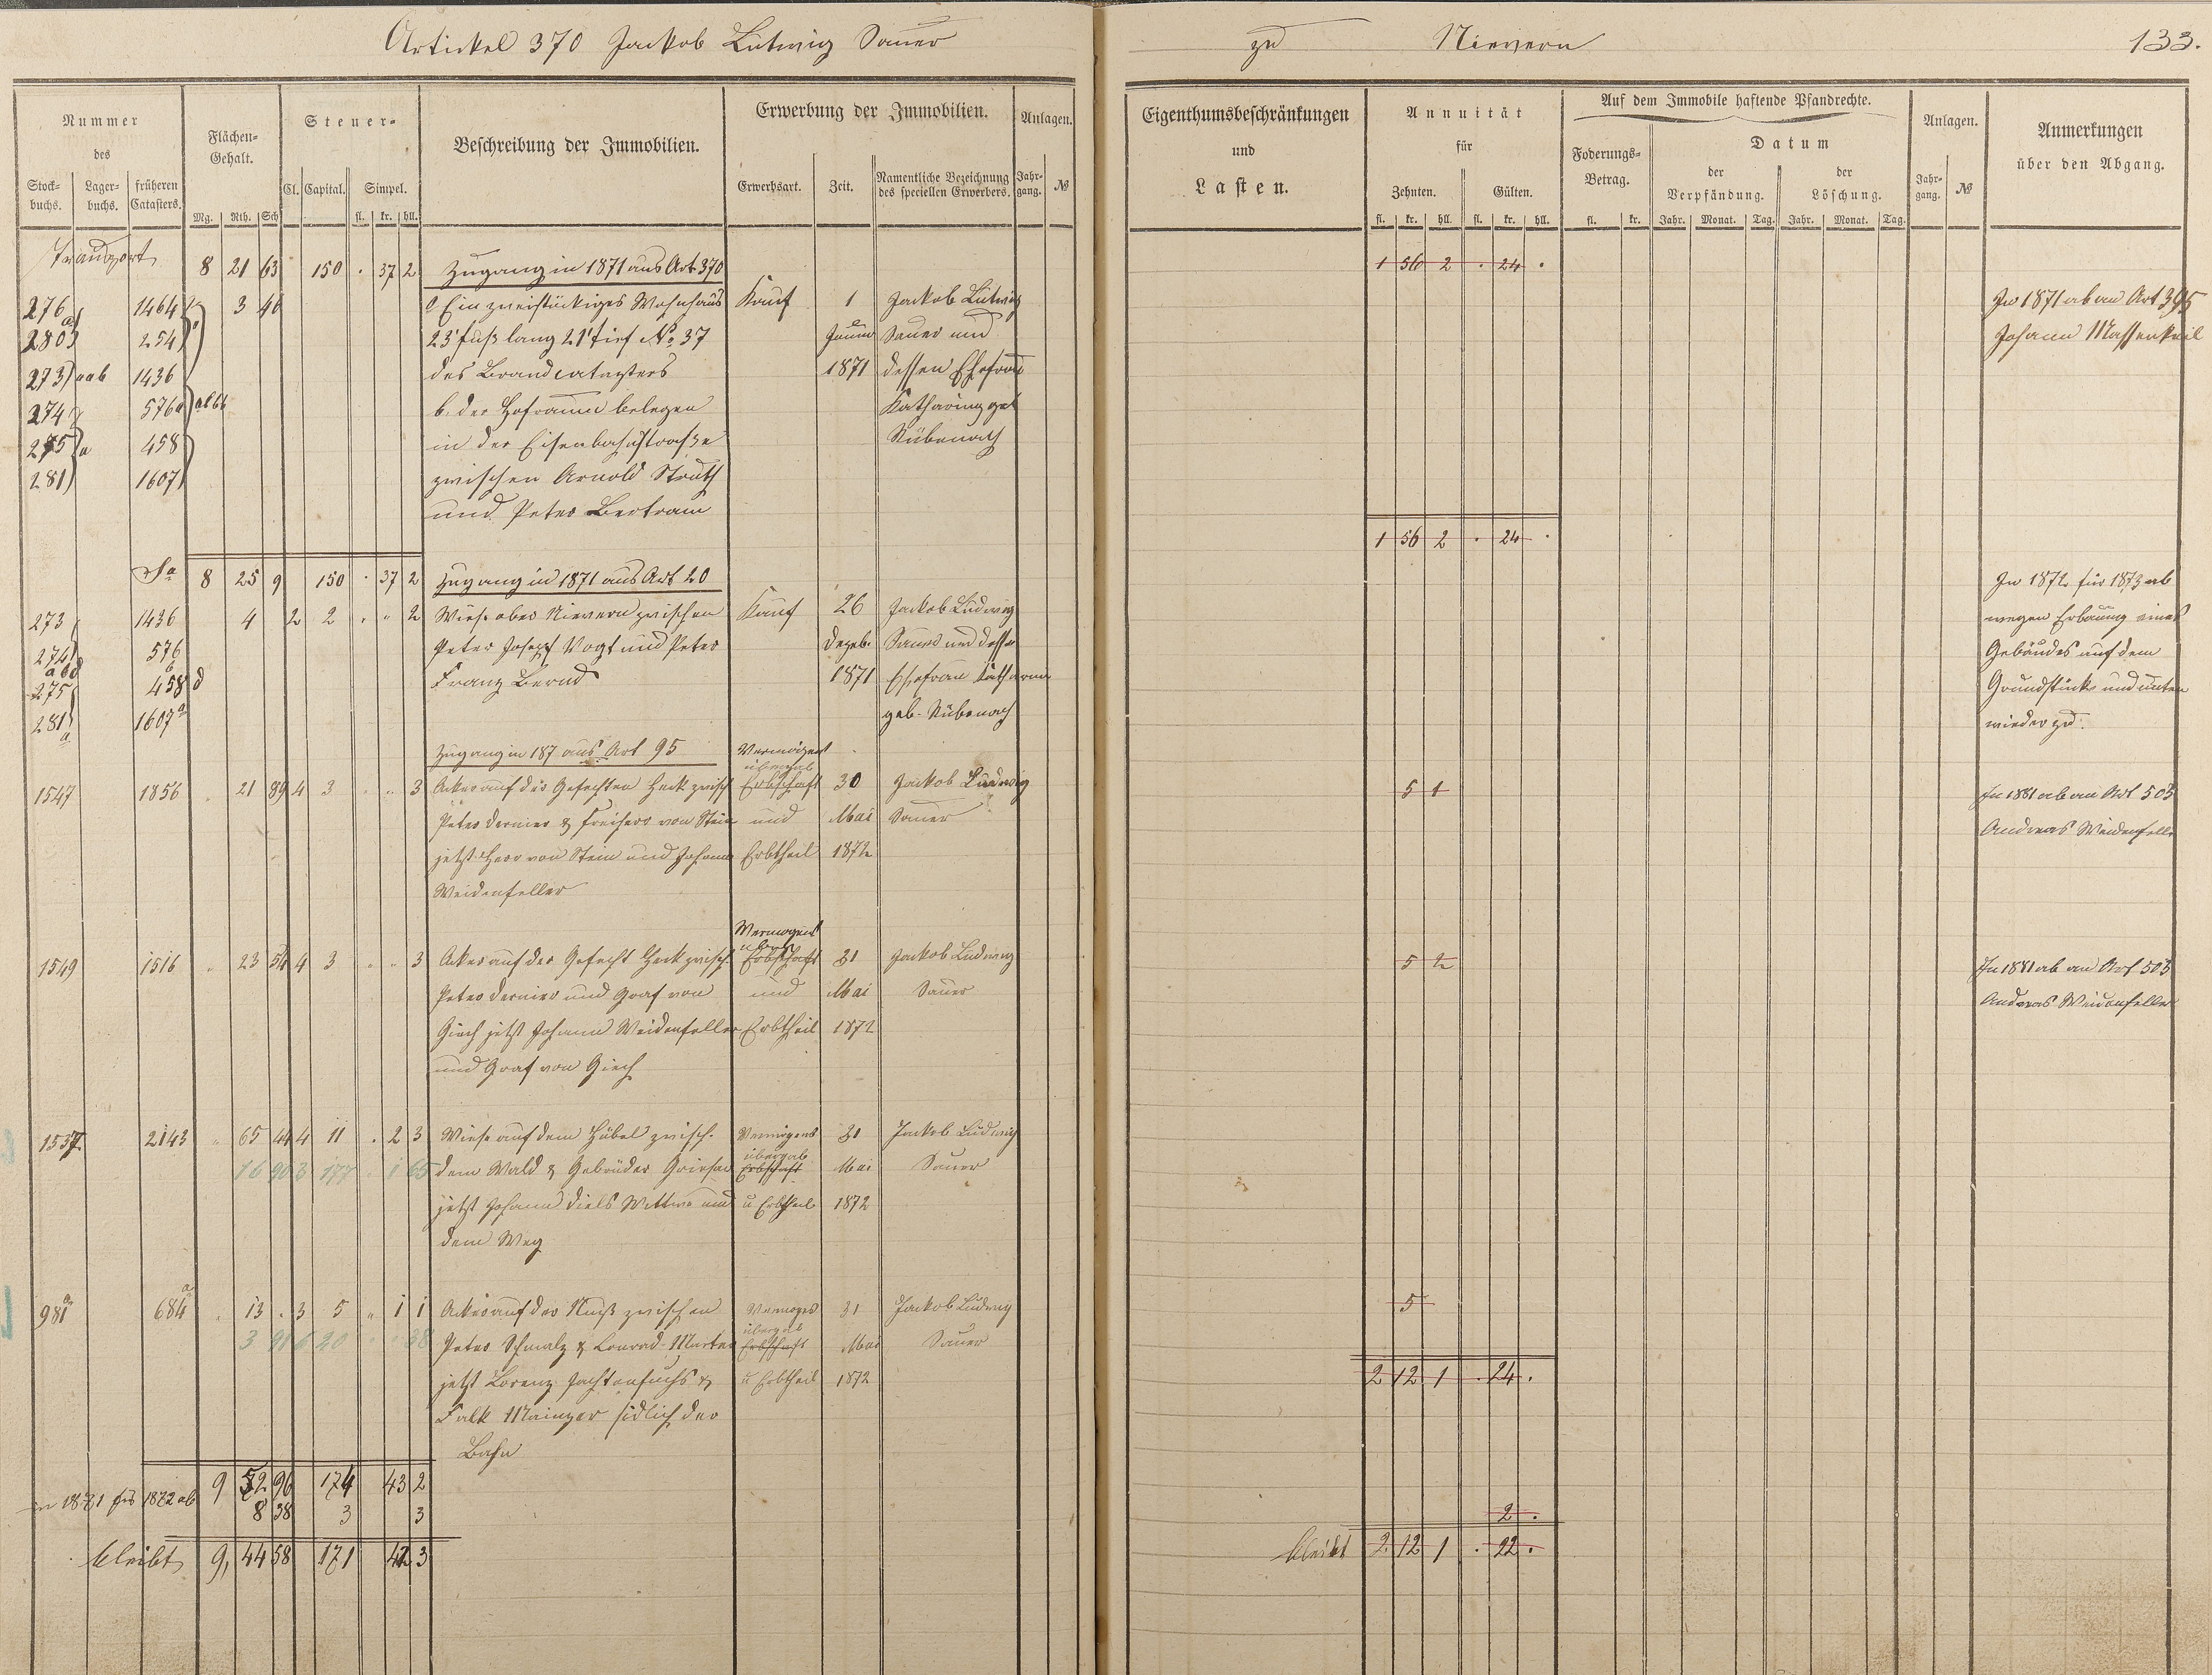 Artickel 370 Jackob Ludwig Sauer
zu Nievern 133.
Nummer des
Stockbuchs. Lagerbuchs. früheren Catasters.
Flächen-Gehalt.
Mg. Rth. Sch
Steuer-
Cl. Capital. Simpel.
fl. kr. hll.
Beschreibung der Immobilien.
Erwerbung der Immobilien.
Erwerbsart. Zeit. Namentliche Bezeichnung des speciellen Erwerbers.
Anlagen.
Jahrgang. №
Eigenthumsbeschränkungen und Lasten.
Annuität für
Zehnten. Gülten.
fl. kr. hll. fl. kr. hll.
Auf dem Immobile haftende Pfandrechte.
Foderungs-Betrag.
fl. kr.
Datum
der Verpfändung. der Löschung.
Jahr. Monat. Tag. Jahr. Monat. Tag.
Anlagen.
Jahrgang. №
Anmerkungen über den Abgang.
Transport 8 21 63 150 . 37 2 Zugang in 1871 aus Art 370 1 56 2 . 24 .
276 1464 3 46 Ein zweistöckiges Wohnhaus Kauf 1 Jackob Ludwig In 1871 ab an Art 395
280 254 23' fuß lang 21' tief No. 37 Januar Sauer und Johann Massenkeil
273 aab 1436 des Brandcatasters 1871 dessen Ehefrau
274 576a b. der Hofraum belegen Katharina geb
275 a 458 in der Eisenbahnstraße Rübenach
281 1607 zwischen Arnold Struth
und Peter Bertram
1 56 2 . 24 .
Sa 8 25 9 150 . 37 2 Zugang in 1871 aus Art 20 In 1872 für 1873 ab
273 1436 4 2 2 . " 2 Wiese ober Nievern zwischen Kauf 26 Jackob Ludwig wegen Erbauung eines
274 576 Peter Joseph Vogt und Peter Dezeb. Sauer und dessen Gebäudes auf dem
abd
275 458 d Franz Bernd 1871 Ehefrau Katharina Grundstück und unten
281 a 1607 a geb. Rübenach wieder zu.
Zugang in 187 aus Art 95 Vermögens
übergab
1547 1856 . 21 89 4 3 . " 3 Acker auf der Gefechten Heck zwisch Erbschaft 30 Jackob Ludwig 5 1 In 1881 ab an Art 503
Peter Dernier & Freiherr von Stein und Mai Sauer Andreas Weidenfeller
jetzt Herr von Stein und Johann Erbtheil 1872
Weidenfeller
Vermögens
1549 1516 " 23 54 4 3 . " 3 Acker auf der Gefecht Heck zwisch Erbschaft 31 Jackob Ludwig 5 2 In 1881 ab an Art 503
Peter Dernier und Graf von und Mai Sauer Andreas Weidenfeller
Giech jetzt Johann Weidenfeller Erbtheil 1872
und Graf von Giech
1537 2143 " 65 44 4 11 . 2 3 Wiese auf dem Hübel zwisch. Vermögens 31 Jackob Ludwig
übergab
16 90 3 177 . 1 65 dem Wald & Gebrüder Erbschaft Mai Sauer
jetzt Johann Diels Wittwe und u Erbtheil 1872
dem Weg
981 a 684 a . 13 . 3 5 " 1 1 Acker auf der zwischen Vermögens 31 Jackob Ludwig 5
übergab
3 91 6 20 38 Peter Schmalz & Conrad Erbschaft Mai Sauer
jetzt Lorenz & u Erbtheil 1872 2 12 1 . 24 .
Falk Mainzer südlich der
Bahn
9 52 96 174 43 2
in 1871 für 1872 ab 8 38 3 3 2 .
bleibt 9, 44 58 171 42 3 bleibt 2 12 1 . 22 .